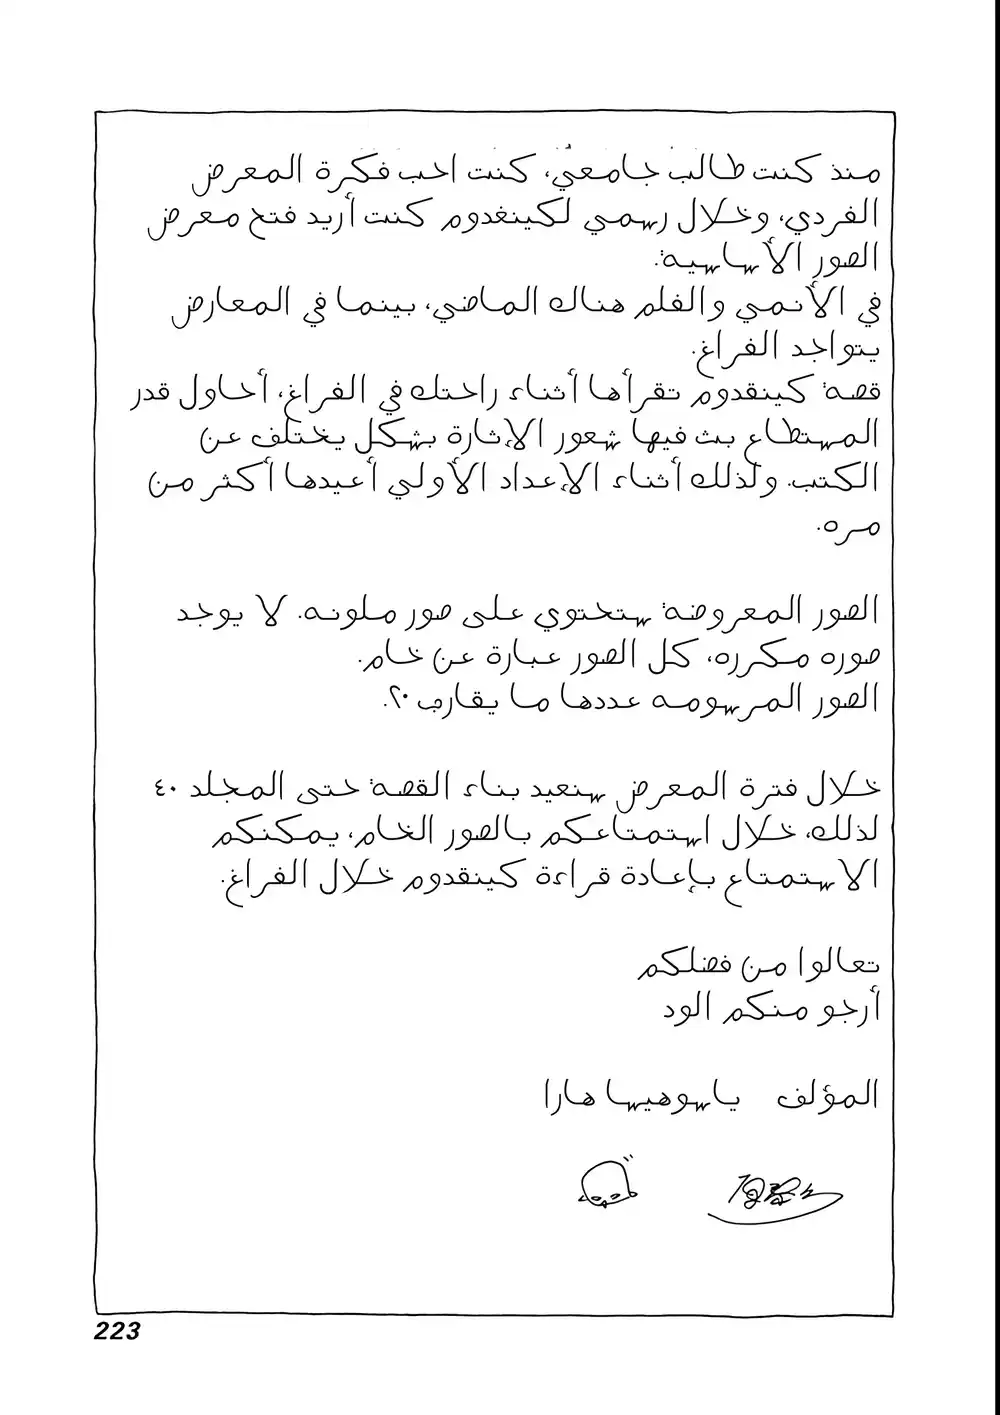 منذ كنت طالب جامعي، كنت احب فكرة المعرض
الفردي، وخلال رسمي لكينغدوم كنت أريد فتح معرض
الصور الأساسية.
في الأنمي والفلم هناك الماضي، بينما في المعارض
يتواجد الفراغ.
قصة كينقدوم تقرأها أثناء راحتك في الفراغ، أحاول قدر
المستطاع بث فيها شعور الإثارة بشكل يختلف عن
الكتب. ولذلك أثناء الإعداد الأولي أعيدها أكثر من
مره.
الصور المعروضة ستحتوي على صور ملونه. لا يوجد
صوره مكرره، كل الصور عبارة عن خام.
الصور المرسومه عددها ما يقارب ٢٠.
خلال فترة المعرض سنعيد بناء القصة حتى المجلد ٤٠
لذلك، خلال استمتاعكم بالصور الخام، يمكنكم
الاستمتاع بإعادة قراءة كينقدوم خلال الفراغ.
تعالوا من فضلكم
أرجو منكم الود
المؤلف ياسوهيسا هارا
223